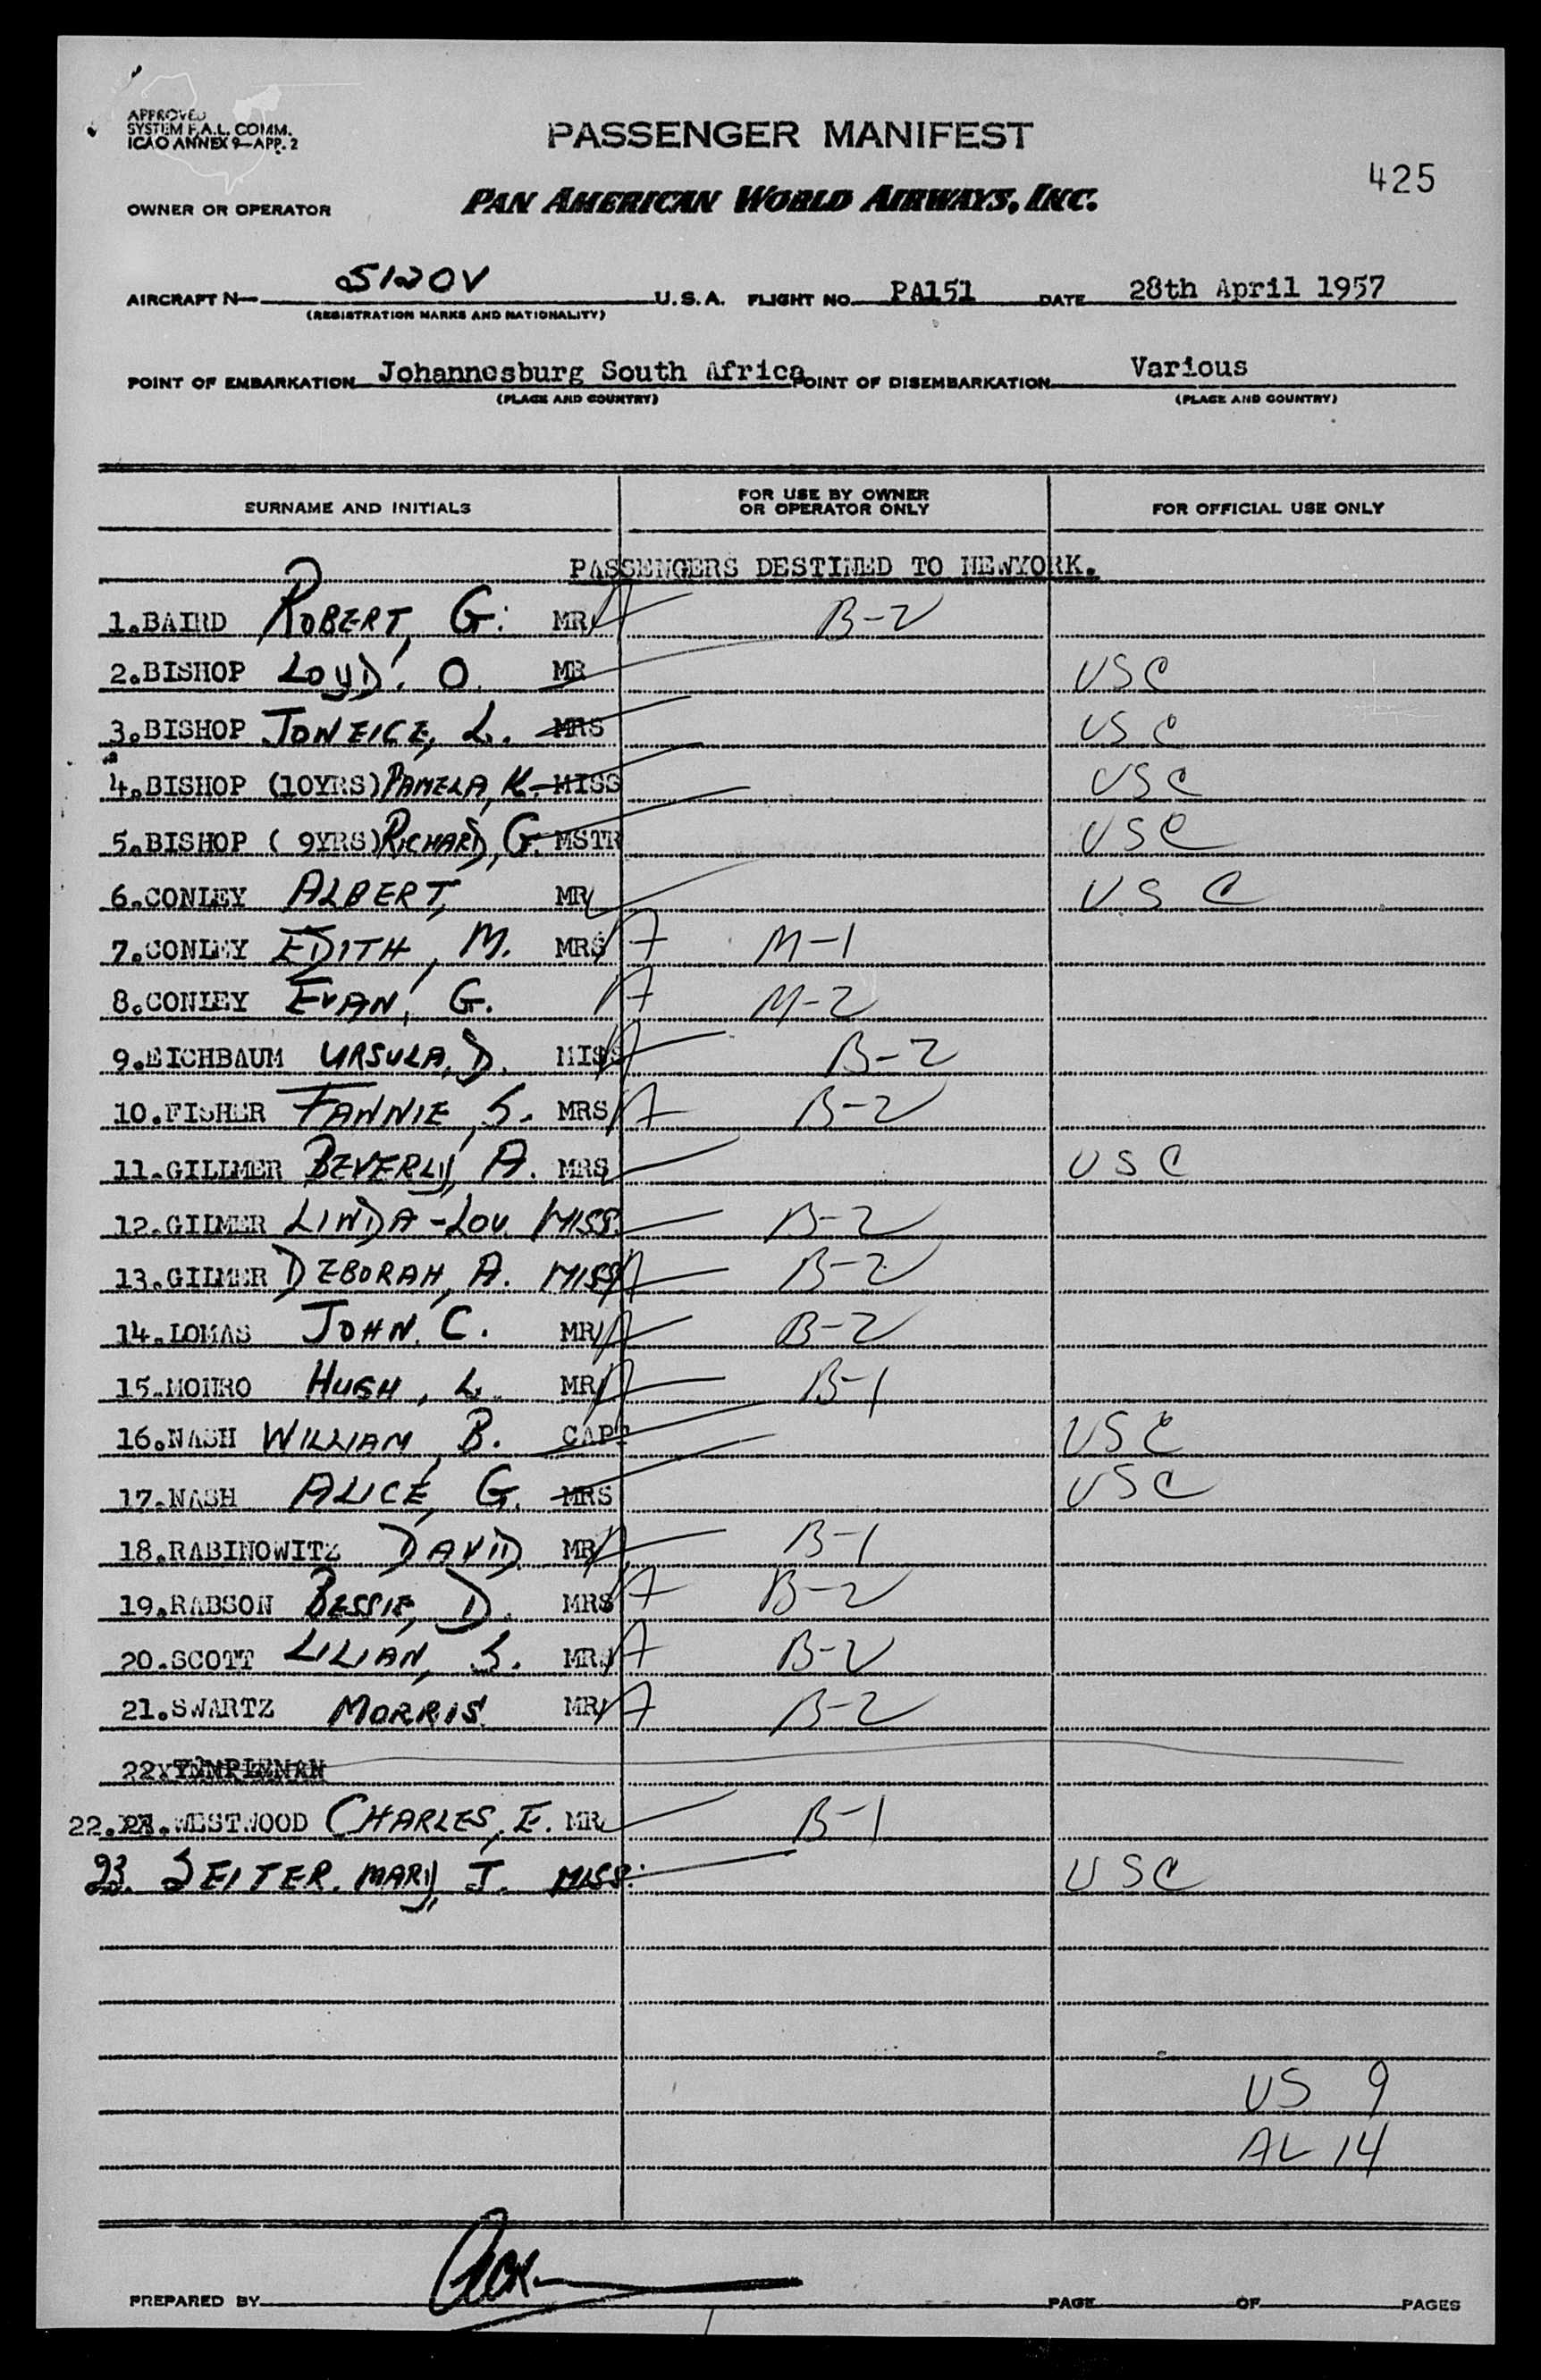 APPROVED
SYSTEM F.A.L. COMM.
ICAO ANNEX 9-APP. 2
PASSENGER MANIFEST
425
OWNER OR OPERATOR PAN AMERICAN WORLD AIRWAYS, INC.
AIRCRAFT N- 5120V U.S.A. FLIGHT NO. PA151 DATE 28th April 1957
(REGISTRATION MARKS AND NATIONALITY)
POINT OF EMBARKATION Johannesburg South Africa POINT OF DISEMBARKATION Various
(PLACE AND COUNTRY) (PLACE AND COUNTRY)
SURNAME AND INITIALS FOR USE BY OWNER OR OPERATOR ONLY FOR OFFICIAL USE ONLY
PASSENGERS DESTINED TO NEWYORK.
1.BAIRD ROBERT, G. MR A B-2
2.BISHOP LOYD, O. MR USC
3.BISHOP JONEICE, L. MRS USC
4.BISHOP (10YRS) PAMELA, K. MISS USC
5.BISHOP ( 9YRS) RICHARD, G. MSTR USC
6.CONLEY ALBERT, MR USC
7.CONLEY EDITH, M. MRS A M-1
8.CONLEY EVAN, G. A M-2
9.EICHBAUM URSULA, D. MISS A B-2
10.FISHER FANNIE, S. MRS A B-2
11.GILLMER BEVERLY, A. MRS USC
12.GILMER LINDA-LOU. MISS. B-2
13.GILMER DEBORAH, A. MISS A B-2
14.LOMAS JOHN, C. MR A B-2
15.MONRO HUGH, L. MR A B-1
16.NASH WILLIAM, B. CAPT USC
17.NASH ALICE, G. MRS USC
18.RABINOWITZ DAVID. MR A B-1
19.RABSON BESSIE, D. MRS A B-2
20.SCOTT LILIAN, S. MRS A B-2
21.SWARTZ MORRIS. MR A B-2
22xTEMPLEMAN
22.23.WESTWOOD CHARLES, E. MR B-1
23. SEITER. MARY, J. MISS. USC
US 9
AL 14
PREPARED BY PAGE OF PAGES